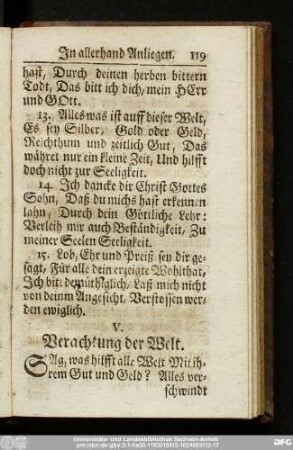 In allerhand Anliegen. 119
hast, Durch deinen herben bittern
Todt, Das bitt ich dich, mein HErr
und GOtt.
13. Alles was ist auff dieser Welt,
Es sey Silber, Gold oder Geld,
Reichthum und zeitlich Gut, Das
währet nur ein kleine Zeit, Und hilfft
doch nicht zur Seeligkeit.
14. Ich dancke dir Christ Gottes
Sohn, Daß du michs hast erkennen
lahn, Durch dein Göttliche Lehr:
Verleih mir auch Beständigkeit, Zu
meiner Seelen Seeligkeit.
15. Lob, Ehr und Preiß sey dir ge-
sagt, Für alle dein erzeigte Wohlthat,
Ich bitt demüthiglich, Laß mich nicht
von deinm Angesicht, Verstossen wer-
den ewiglich.
V.
Verachtung der Welt.
SAg, was hilfft alle Welt Mit ih-
rem Gut und Geld? Alles ver-
schwindt
Universitäts- und Landesbibliothek Sachsen-Anhalt